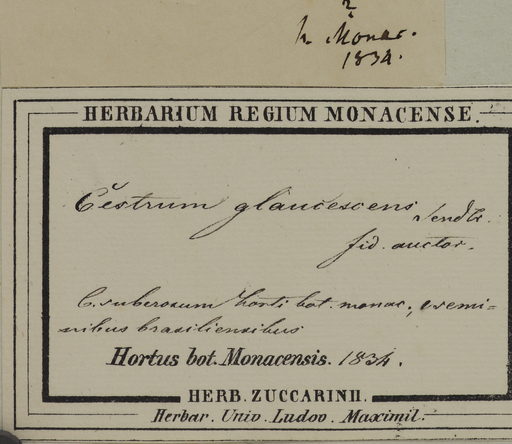 ?
h. Monac.
1834.
HERBARIUM REGIUM MONACENSE.
Cestrum glaucescens Sendtr.
fid. auctor.
C. suberosum horti bot. monac., e semi-
nibus brasiliensibus
Hortus bot. Monacensis. 1834.
HERB. ZUCCARINII.
Herbar. Univ. Ludov. Maximil.